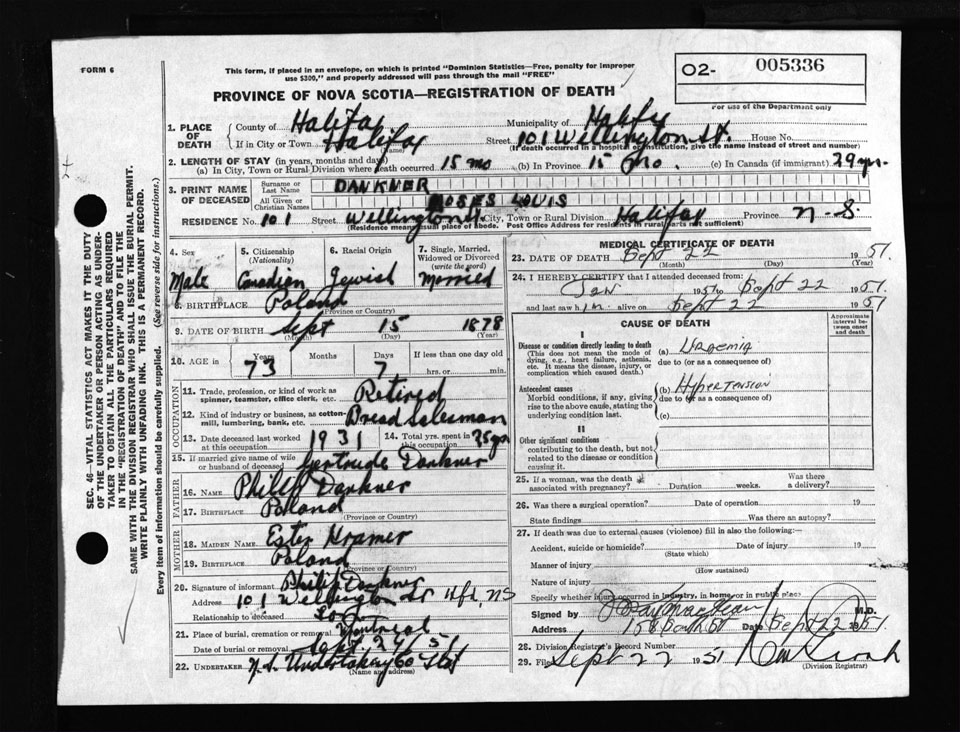 FORM 6
This form, if placed in an envelope, on which is printed "Dominion Statistics—Free, penalty for improper
use $300," and properly addressed will pass through the mail "FREE"
O2- 005336
For use of the Department only
PROVINCE OF NOVA SCOTIA—REGISTRATION OF DEATH
1. PLACE OF DEATH
County of Halifax Municipality of Halifx
If in City or Town Halifax Street 101 Wellington St. House No.
(Name) (If death occurred in a hospital or institution, give the name instead of street and number)
2. LENGTH OF STAY (in years, months and days)
(a) In City, Town or Rural Division where death occurred 15 mo (b) In Province 15 mo. (c) In Canada (if immigrant) 39 yrs.
3. PRINT NAME OF DECEASED
Surname or Last Name DANKNER
All Given or Christian Names MOSES LOUIS
RESIDENCE No. 101 Street Wellington St. City, Town or Rural Division Halifax Province N-S.
(Residence means usual place of abode. Post Office Address for residents in rural parts not sufficient)
4. Sex Male
5. Citizenship (Nationality) Canadian
6. Racial Origin Jewish
7. Single, Married, Widowed or Divorced (write the word) Married
8. BIRTHPLACE Poland
(Province or Country)
9. DATE OF BIRTH Sept 15 1878
(Month) (Day) (Year)
10. AGE in 73 Years Months 7 Days If less than one day old
hrs. or min.
OCCUPATION
11. Trade, profession, or kind of work as spinner, teamster, office clerk, etc. Retired
12. Kind of industry or business, as cotton-mill, lumbering, bank, etc. Bread Salesman
13. Date deceased last worked at this occupation 1931
14. Total yrs. spent in this occupation 25 yrs
15. If married give name of wife or husband of deceased Gertrude Dankner
FATHER
16. NAME Philip Dankner
17. BIRTHPLACE Poland
(Province or Country)
MOTHER
18. MAIDEN NAME Ester Kramer
19. BIRTHPLACE Poland
(Province or Country)
20. Signature of informant Philip Dankner
Address 101 Wellington St Hfx, NS
Relationship to deceased Son
21. Place of burial, cremation or removal Montreal
Date of burial or removal Sept 24/51
22. UNDERTAKER N.S. Undertaking Co
(Name and address)
MEDICAL CERTIFICATE OF DEATH
23. DATE OF DEATH Sept 22 1951
(Month) (Day) (Year)
24. I HEREBY CERTIFY that I attended deceased from:
Jan 1951 to Sept 22 1951.
and last saw him alive on Sept 22 1951
CAUSE OF DEATH
Approximate interval between onset and death
I
Disease or condition directly leading to death
(This does not mean the mode of dying, e.g., heart failure, asthenia, etc. It means the disease, injury, or complication which caused death.)
(a) Uraemia
due to (or as a consequence of)
Antecedent causes
Morbid conditions, if any, giving rise to the above cause, stating the underlying condition last.
(b) Hypertension
due to (or as a consequence of)
(c)
II
Other significant conditions
contributing to the death, but not related to the disease or condition causing it.
25. If a woman, was the death associated with pregnancy? Duration weeks. Was there a delivery?
26. Was there a surgical operation? Date of operation 19
State findings Was there an autopsy?
27. If death was due to external causes (violence) fill in also the following:
Accident, suicide or homicide? Date of injury 19
(State which)
Manner of injury
(How sustained)
Nature of injury
Specify whether injury occurred in industry, in home or in public place
Signed by M.D.
Address Date Sept 22 1951.
28. Division Registrar's Record Number
29. Filed Sept 22 1951
(Division Registrar)
SEC. 46—VITAL STATISTICS ACT MAKES IT THE DUTY
OF THE UNDERTAKER OR PERSON ACTING AS UNDER-
TAKER TO OBTAIN ALL THE PARTICULARS REQUIRED
IN THE "REGISTRATION OF DEATH" AND TO FILE THE
SAME WITH THE DIVISION REGISTRAR WHO SHALL ISSUE THE BURIAL PERMIT.
WRITE PLAINLY WITH UNFADING INK. THIS IS A PERMANENT RECORD.
Every item of information should be carefully supplied. (See reverse side for instructions.)